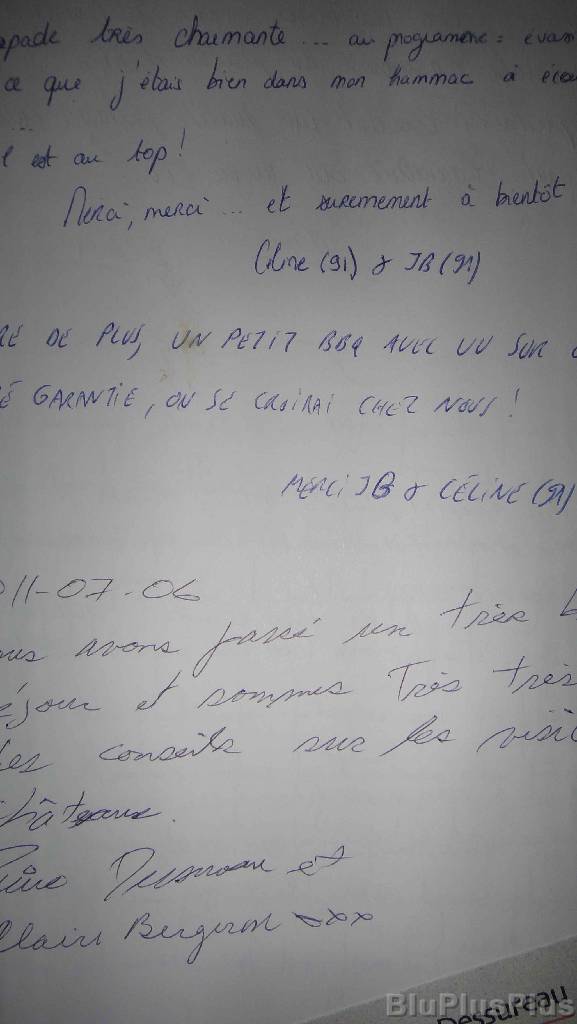 pade très charmante... au programme: évas
ce que j'étais bien dans mon hammac à écou
...
l est au top!
Merci, merci... et surement à bientôt
Céline (91) & JB (91)
RÉ DE PLUS, UN PETIT BBQ AVEC VU SUR
É GARANTIE, ON SE CROIRAI CHEZ NOUS!
MERCI JB & CÉLINE (91)
011-07-06
ous avons passé un très b
éjour et sommes Très très
les conseils sur les visi
châteaux.
et
Claire Bergeron xxx
Dessureau
BluPlusPlus